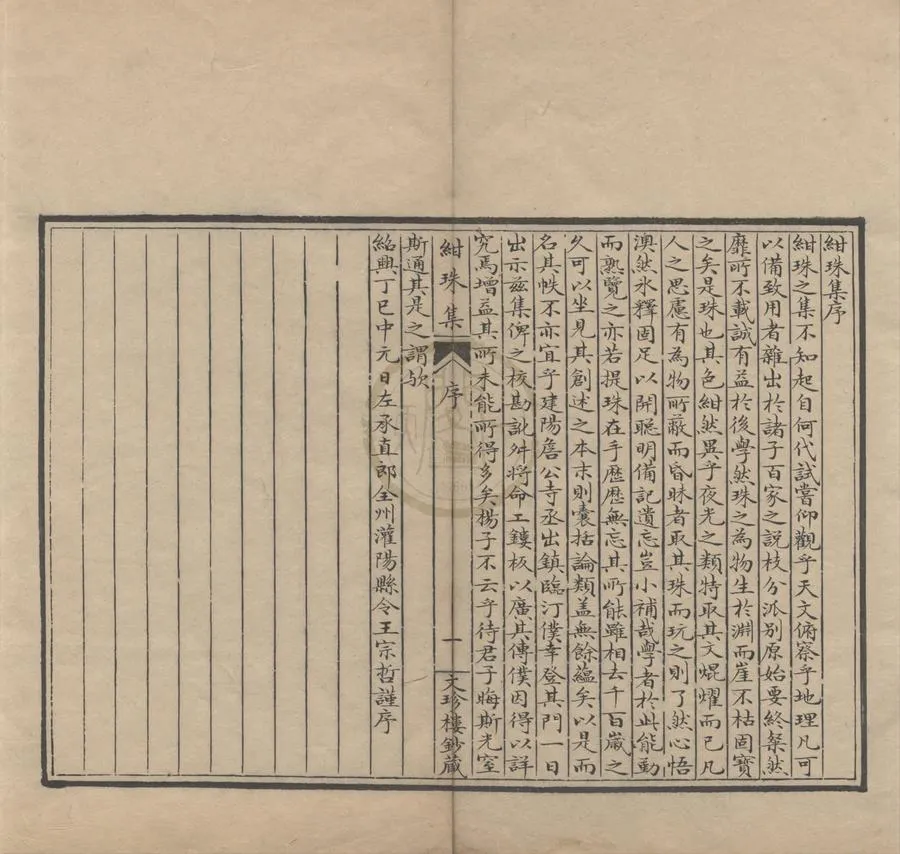 紺珠集序
紺珠之集不知起自何代試嘗仰觀乎天文俯察乎地理凡可
以備致用者雜出於諸子百家之說枝分派別原始要終粲然
靡所不載誠有益於後學然珠之為物生於淵而崖不枯固寶
之矣是珠也其色紺然異乎夜光之類特取其文焜燿而已凡
人之思慮有為物所蔽而昏昧者取其珠而玩之則了然心悟
渙然冰釋固足以開聰明備記遺忘豈小補哉學者於此能勤
而熟覽之亦若提珠在手歷歷無忘其所能雖相去千百歲之
久可以坐見其創述之本末則囊括論類蓋無餘蘊矣以是而
名其帙不亦宜乎建陽詹公寺丞出鎮臨汀僕幸登其門一日
出示茲集俾之校勘訛舛將命工鏤板以廣其傳僕因得以詳
究焉增益其所未能所得多矣楊子不云乎待君子晦斯光窒
紺珠集
序
一
天珍樓鈔藏
斯通其是之謂歟
紹興丁巳中元日左承直郎全州灌陽縣令王宗哲謹序